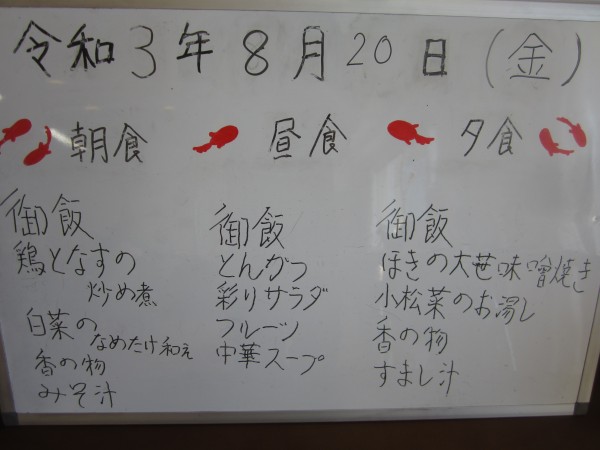 令和3年8月20日(金)
朝食
御飯
鶏となすの
炒め煮
白菜の
なめたけ和え
香の物
みそ汁
昼食
御飯
とんかつ
彩りサラダ
フルーツ
中華スープ
夕食
御飯
ほきの大葉味噌焼き
小松菜のお湯し
香の物
すまし汁